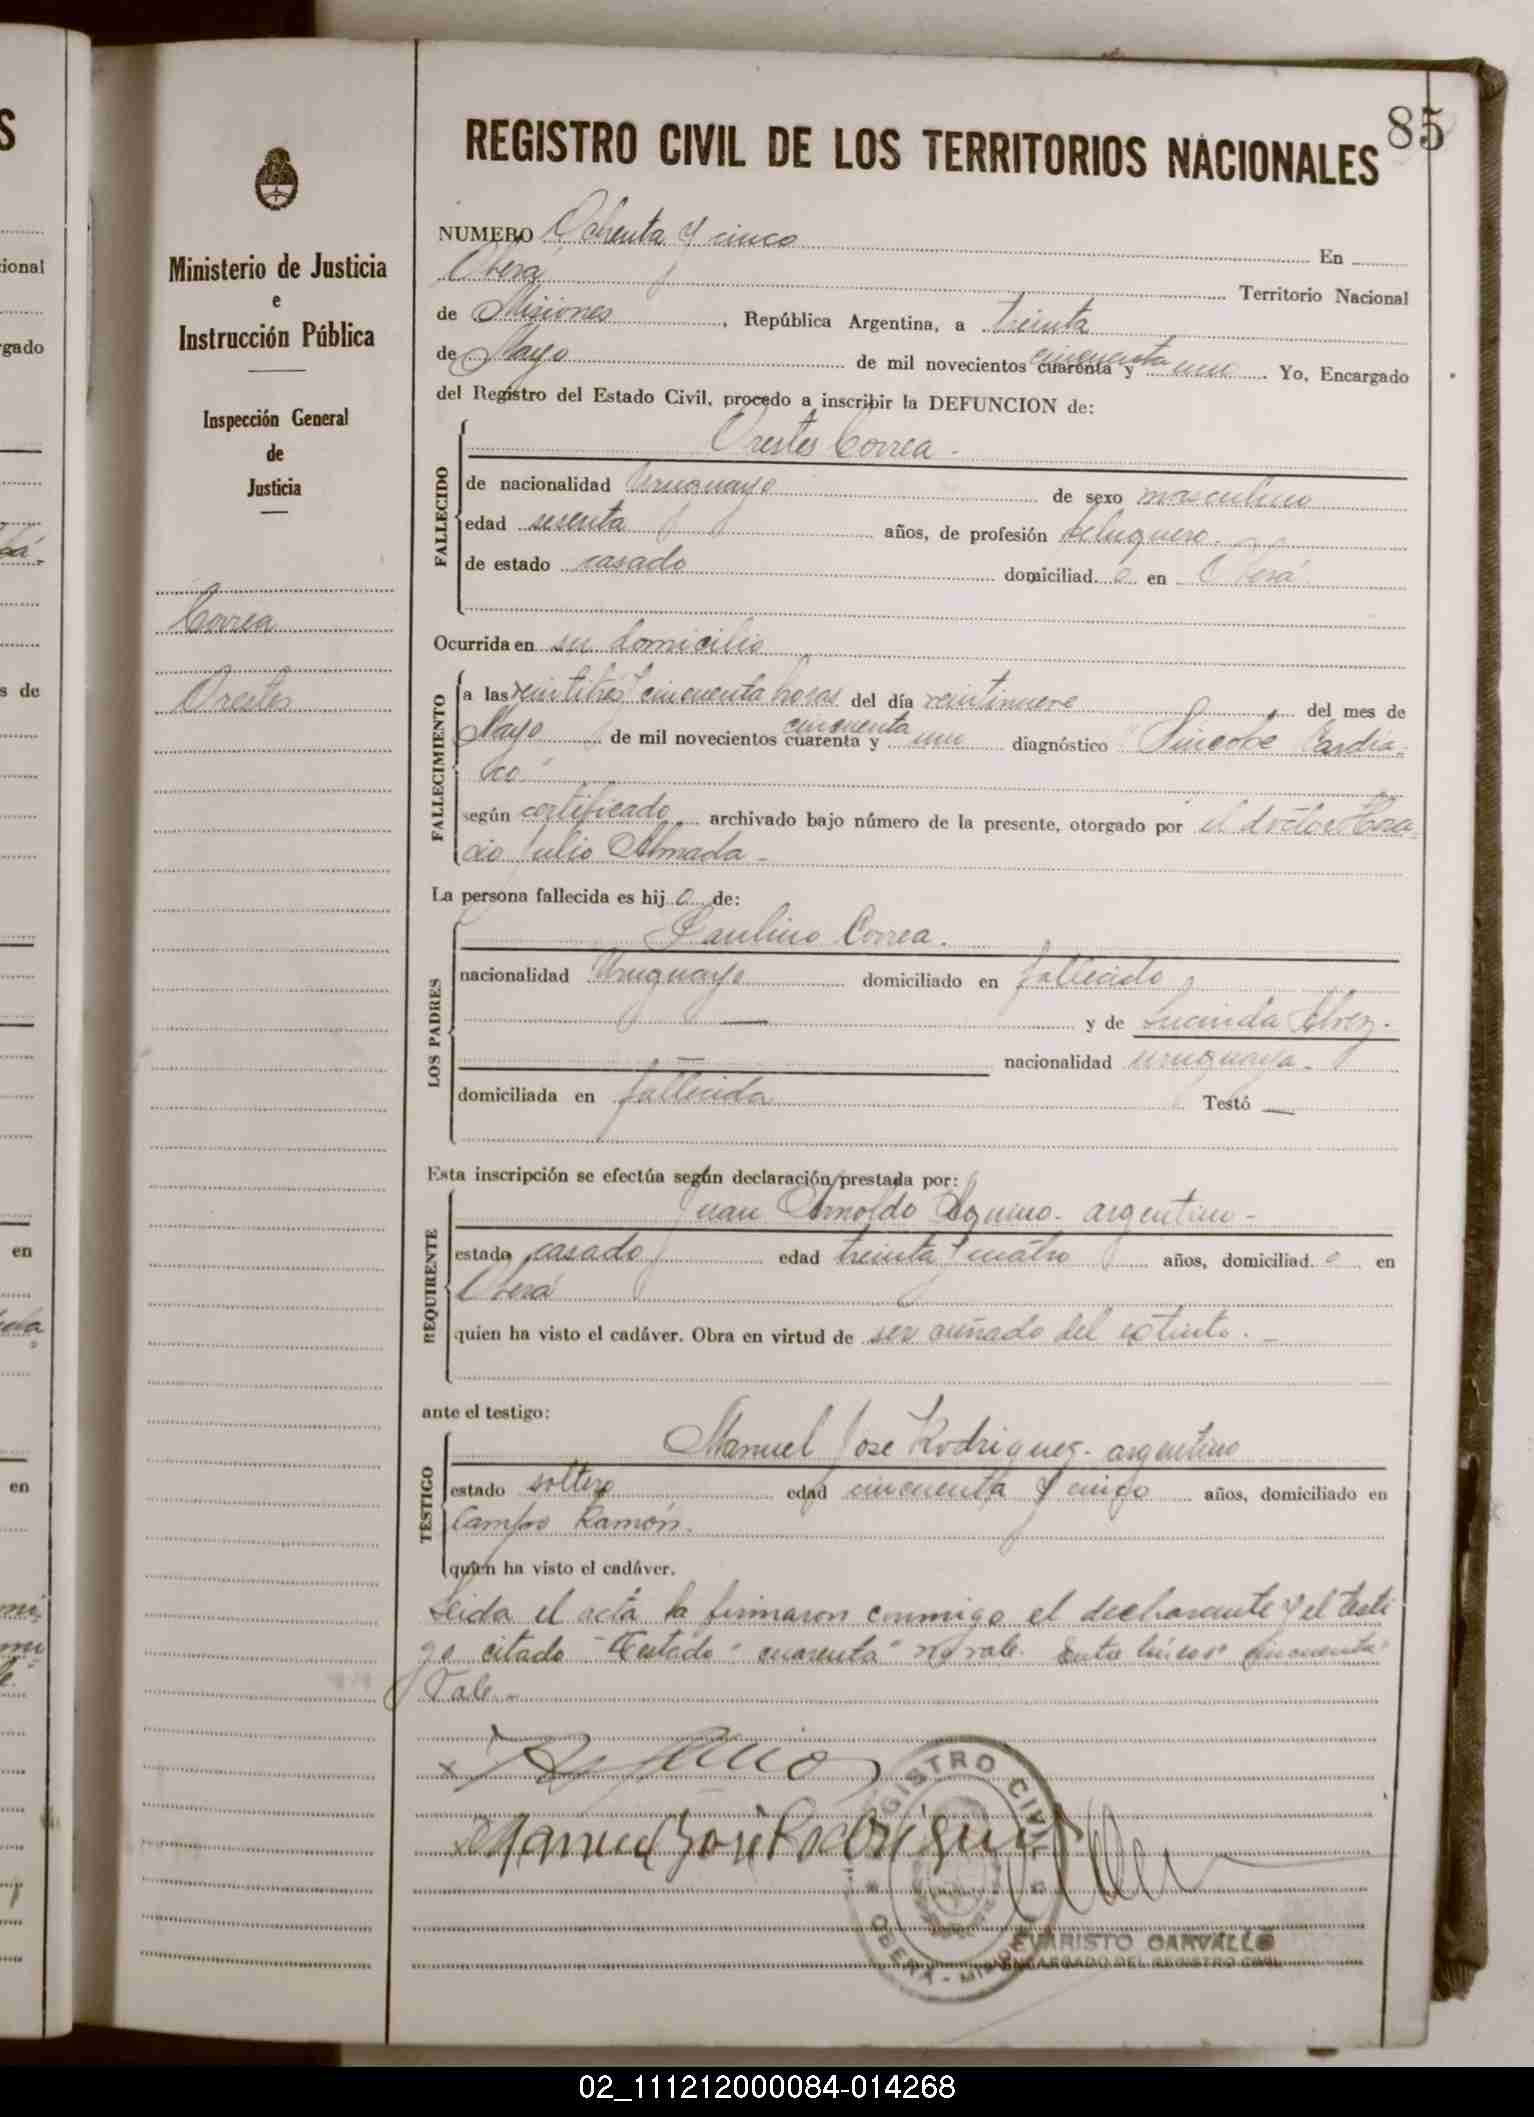 85
REGISTRO CIVIL DE LOS TERRITORIOS NACIONALES
Ministerio de Justicia
e
Instrucción Pública
Inspección General
de
Justicia
Correa
Orestes
NUMERO Ochenta y cinco En
Oberá Territorio Nacional
de Misiones, República Argentina, a treinta
de Mayo de mil novecientos cuarenta y cincuenta uno. Yo, Encargado
del Registro del Estado Civil, procedo a inscribir la DEFUNCION de:
Orestes Correa.-
FALLECIDO
de nacionalidad Uruguayo de sexo masculino
edad sesenta años, de profesión Peluquero.
de estado casado domiciliad o en Oberá
Ocurrida en su domicilio
FALLECIMIENTO
a las veintitrés y cincuenta horas del día veintinueve del mes de
Mayo de mil novecientos cuarenta y cincuenta uno diagnóstico "Síncope Cardía-
co"
según certificado archivado bajo número de la presente, otorgado por el doctor Hora-
cio Julio Almada.-
La persona fallecida es hij o de:
LOS PADRES
Paulino Correa.
nacionalidad Uruguayo domiciliado en fallecido
y de Lucinda
nacionalidad uruguaya.
domiciliada en fallecida Testó —
Esta inscripción se efectúa según declaración prestada por:
REQUIRENTE
Juan Arnoldo Aquino- argentino-
estado casado edad treinta y cuatro años, domiciliad o en
Oberá
quien ha visto el cadáver. Obra en virtud de ser cuñado del extinto.-
ante el testigo:
TESTIGO
Manuel José Rodriguez- argentino
estado soltero edad cincuenta y cinco años, domiciliado en
Campo Ramón.
quien ha visto el cadáver.
Leida el acta la firmaron conmigo el declarante y el testi
go citado- Testado "cuarenta" no vale. Entre líneas "cincuenta"
Vale.-
Manuel José Rodriguez
REGISTRO CIVIL
OBERA - MISIONES
EVARISTO CARVALLO
ENCARGADO DEL REGISTRO CIVIL
02_111212000084-014268